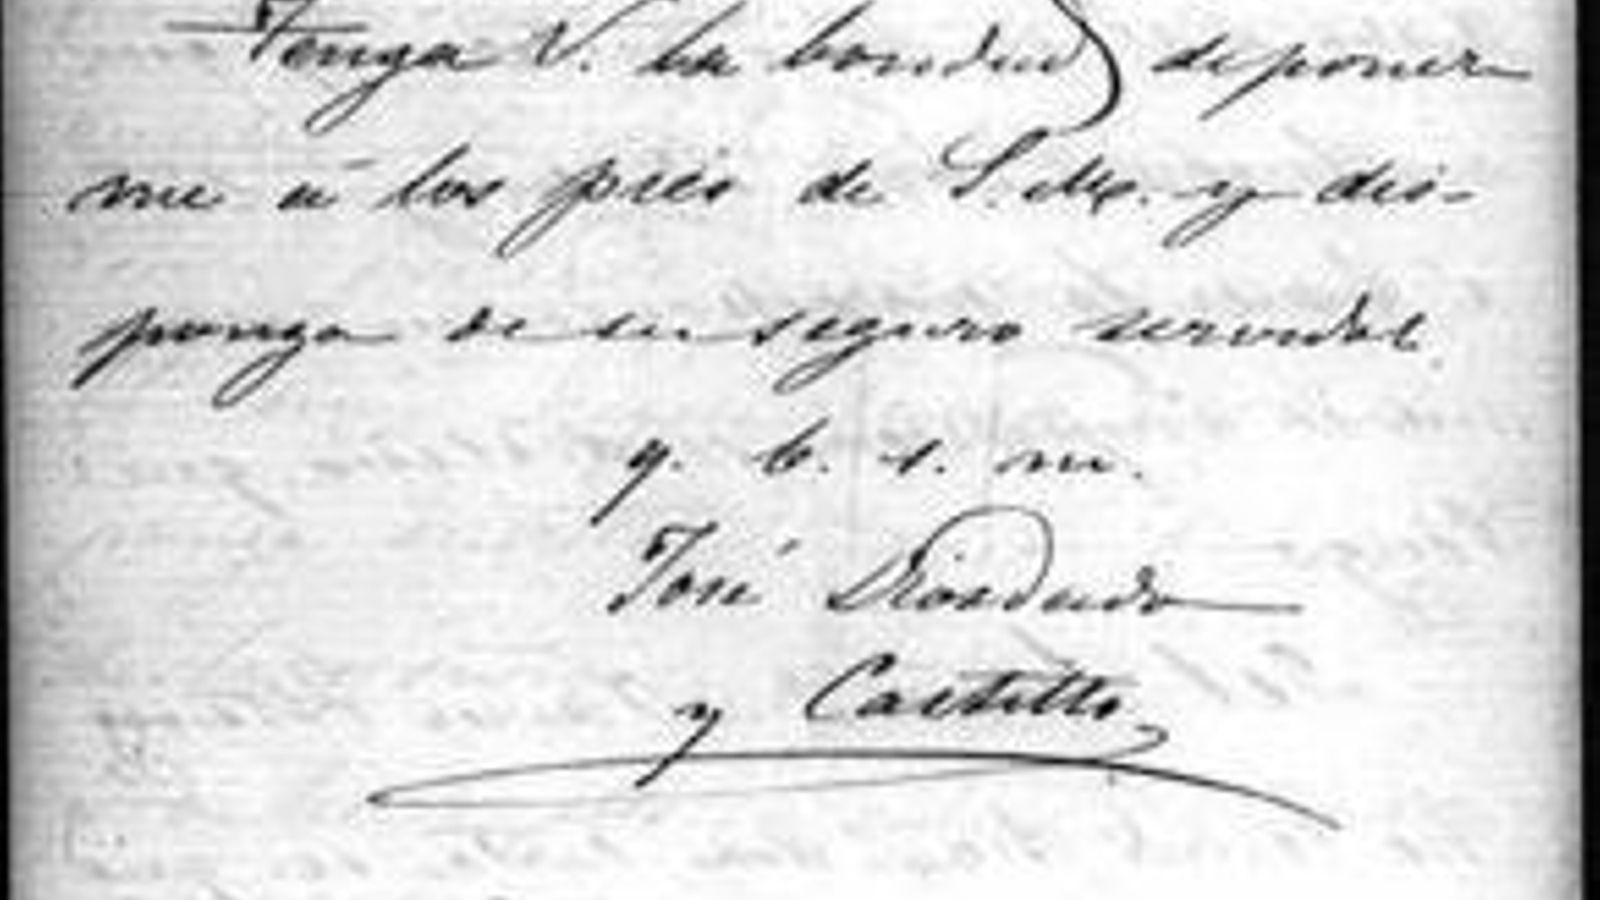 Tenga V. la bondad de poner
me á los piés de S. M. y dis-
ponga de su seguro servidor
q. b. s. m.
José Diosdado
y Castillo